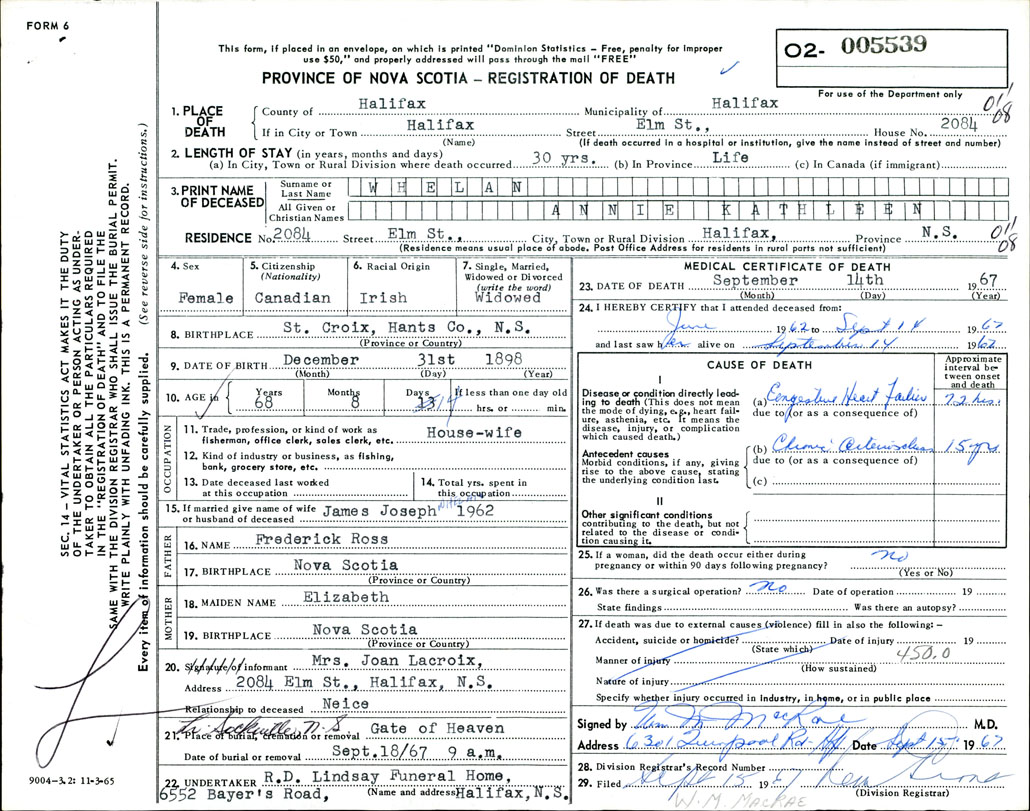 FORM 6
This form, if placed in an envelope, on which is printed "Dominion Statistics – Free, penalty for improper
use $50," and properly addressed will pass through the mail "FREE"
PROVINCE OF NOVA SCOTIA – REGISTRATION OF DEATH
02- 005539
For use of the Department only
1. PLACE OF DEATH
County of Halifax Municipality of Halifax
If in City or Town Halifax Street Elm St., House No. 2084
(Name) (If death occurred in a hospital or institution, give the name instead of street and number)
011
08
2. LENGTH OF STAY (in years, months and days)
(a) In City, Town or Rural Division where death occurred 30 yrs. (b) In Province Life (c) In Canada (if immigrant)
3. PRINT NAME OF DECEASED
Surname or Last Name WHELAN
All Given or Christian Names ANNIE KATHLEEN
RESIDENCE No. 2084 Street Elm St., City, Town or Rural Division Halifax, Province N.S.
(Residence means usual place of abode. Post Office Address for residents in rural parts not sufficient)
011
08
SEC. 14 – VITAL STATISTICS ACT MAKES IT THE DUTY
OF THE UNDERTAKER OR PERSON ACTING AS UNDER-
TAKER TO OBTAIN ALL THE PARTICULARS REQUIRED
IN THE "REGISTRATION OF DEATH" AND TO FILE THE
SAME WITH THE DIVISION REGISTRAR WHO SHALL ISSUE THE BURIAL PERMIT.
WRITE PLAINLY WITH UNFADING INK. THIS IS A PERMANENT RECORD.
Every item of information should be carefully supplied. (See reverse side for instructions.)
4. Sex
Female
5. Citizenship
(Nationality)
Canadian
6. Racial Origin
Irish
7. Single, Married,
Widowed or Divorced
(write the word)
Widowed
8. BIRTHPLACE St. Croix, Hants Co., N.S.
(Province or Country)
9. DATE OF BIRTH December 31st 1898
(Month) (Day) (Year)
10. AGE in Years 68 Months 8 Days 14 If less than one day old
hrs. or min.
OCCUPATION
11. Trade, profession, or kind of work as
fisherman, office clerk, sales clerk, etc. House-wife
12. Kind of industry or business, as fishing,
bank, grocery store, etc.
13. Date deceased last worked
at this occupation
14. Total yrs. spent in
this occupation
15. If married give name of wife
or husband of deceased James Joseph 1962
FATHER
16. NAME Frederick Ross
17. BIRTHPLACE Nova Scotia
(Province or Country)
MOTHER
18. MAIDEN NAME Elizabeth
19. BIRTHPLACE Nova Scotia
(Province or Country)
20. Signature of informant Mrs. Joan Lacroix,
Address 2084 Elm St., Halifax, N.S.
Relationship to deceased Neice
Lr. Sackville, N.S.
21. Place of burial, cremation or removal Gate of Heaven
Date of burial or removal Sept.18/67 9 a.m.
22. UNDERTAKER R.D. Lindsay Funeral Home,
6552 Bayer's Road, (Name and address) Halifax, N.S.
9004-3.2: 11-3-65
MEDICAL CERTIFICATE OF DEATH
23. DATE OF DEATH September 14th 1967
(Month) (Day) (Year)
24. I HEREBY CERTIFY that I attended deceased from:
June 1962 to Sept 14 1967
and last saw her alive on September 14 1967
CAUSE OF DEATH
Approximate
interval be-
tween onset
and death
I
Disease or condition directly lead-
ing to death (This does not mean
the mode of dying, e.g., heart fail-
ure, asthenia, etc. it means the
disease, injury, or complication
which caused death.)
(a) Congestive Heart Failure 72 hrs.
due to (or as a consequence of)
Antecedent causes
Morbid conditions, if any, giving
rise to the above cause, stating
the underlying condition last.
(b) Chronic Arteriosclerosis 15 yrs
due to (or as a consequence of)
(c)
II
Other significant conditions
contributing to the death, but not
related to the disease or condi-
tion causing it.
25. If a woman, did the death occur either during
pregnancy or within 90 days following pregnancy? No
(Yes or No)
26. Was there a surgical operation? No Date of operation 19
State findings Was there an autopsy?
27. If death was due to external causes (violence) fill in also the following: –
Accident, suicide or homicide? Date of injury 19
(State which)
450.0
Manner of injury
(How sustained)
Nature of injury
Specify whether injury occurred in Industry, in home, or in public place
Signed by Wm M MacRae M.D.
Address 6301 Quinpool Rd Hfx Date Sept 15 1967
28. Division Registrar's Record Number
29. Filed Sept 15 1967
(Division Registrar)
W. M. MACRAE